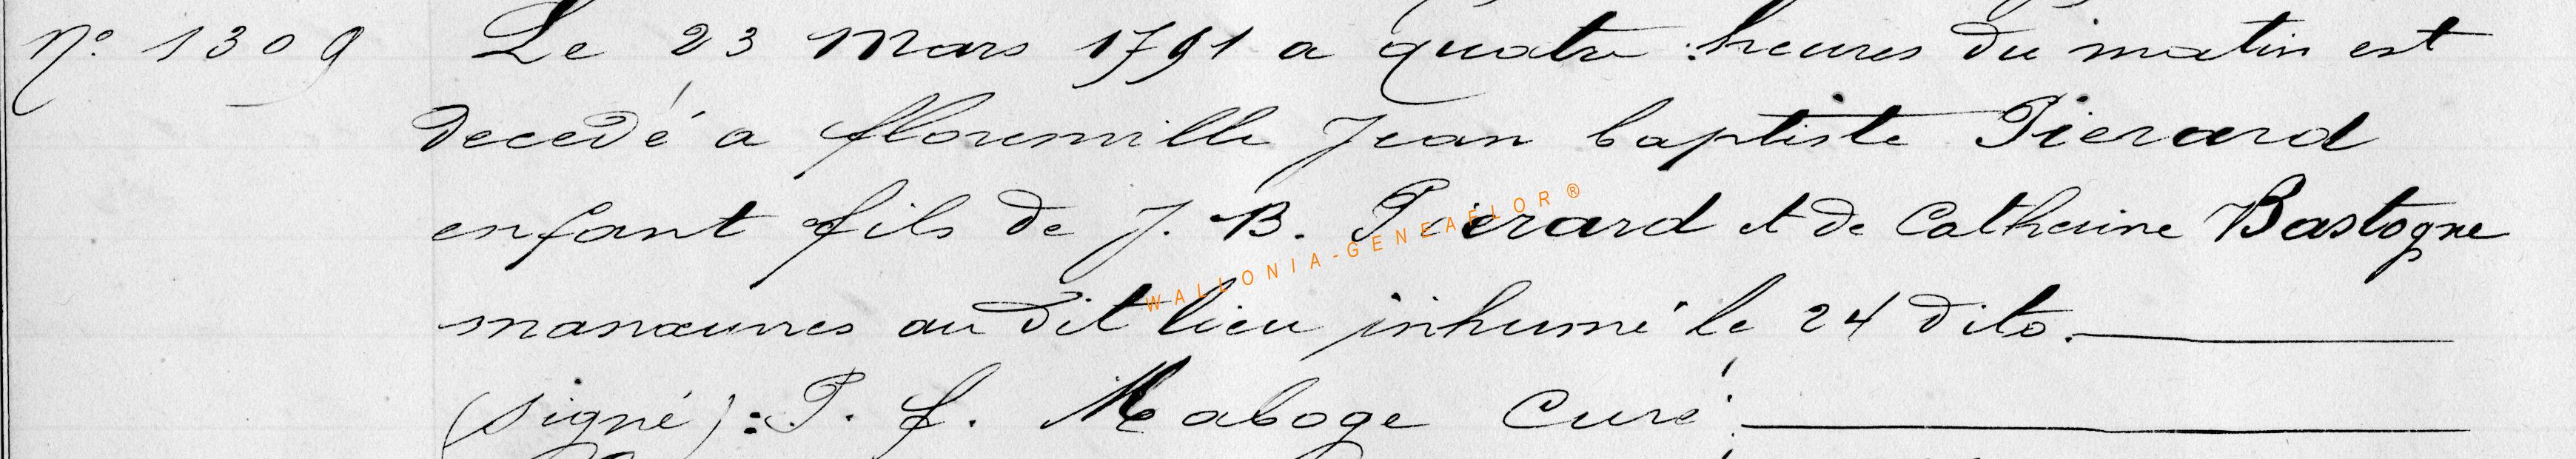 N° 1309 Le 23 Mars 1791 a quatre heures du matin est
decedé a florenville Jean baptiste Pierard
enfant fils de J. B. Pierard et de Catherine Bastogne
manœuvres au dit lieu inhumé le 24 dito.
(signé): P. f. Maboge Curé
WALLONIA-GENEAFLOR ®